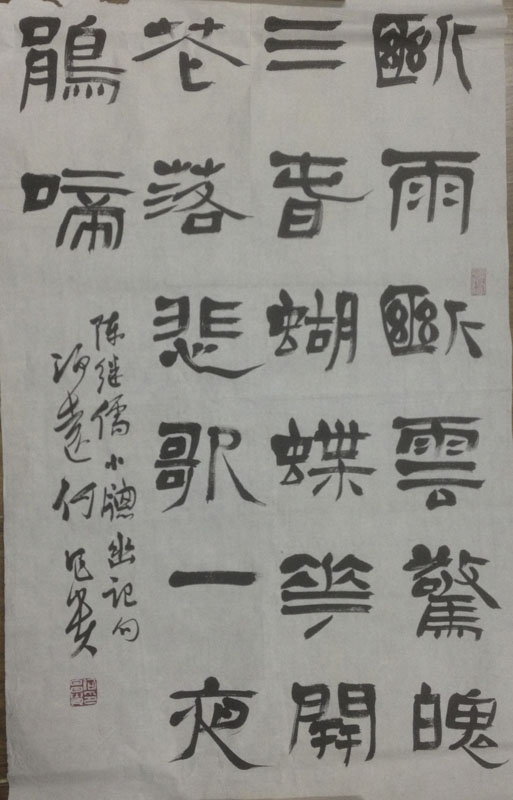 斷雨斷雲驚魄
三春蝴蝶華開
花落悲歌一夜
鵑啼
陈继儒小牕幽记句
何